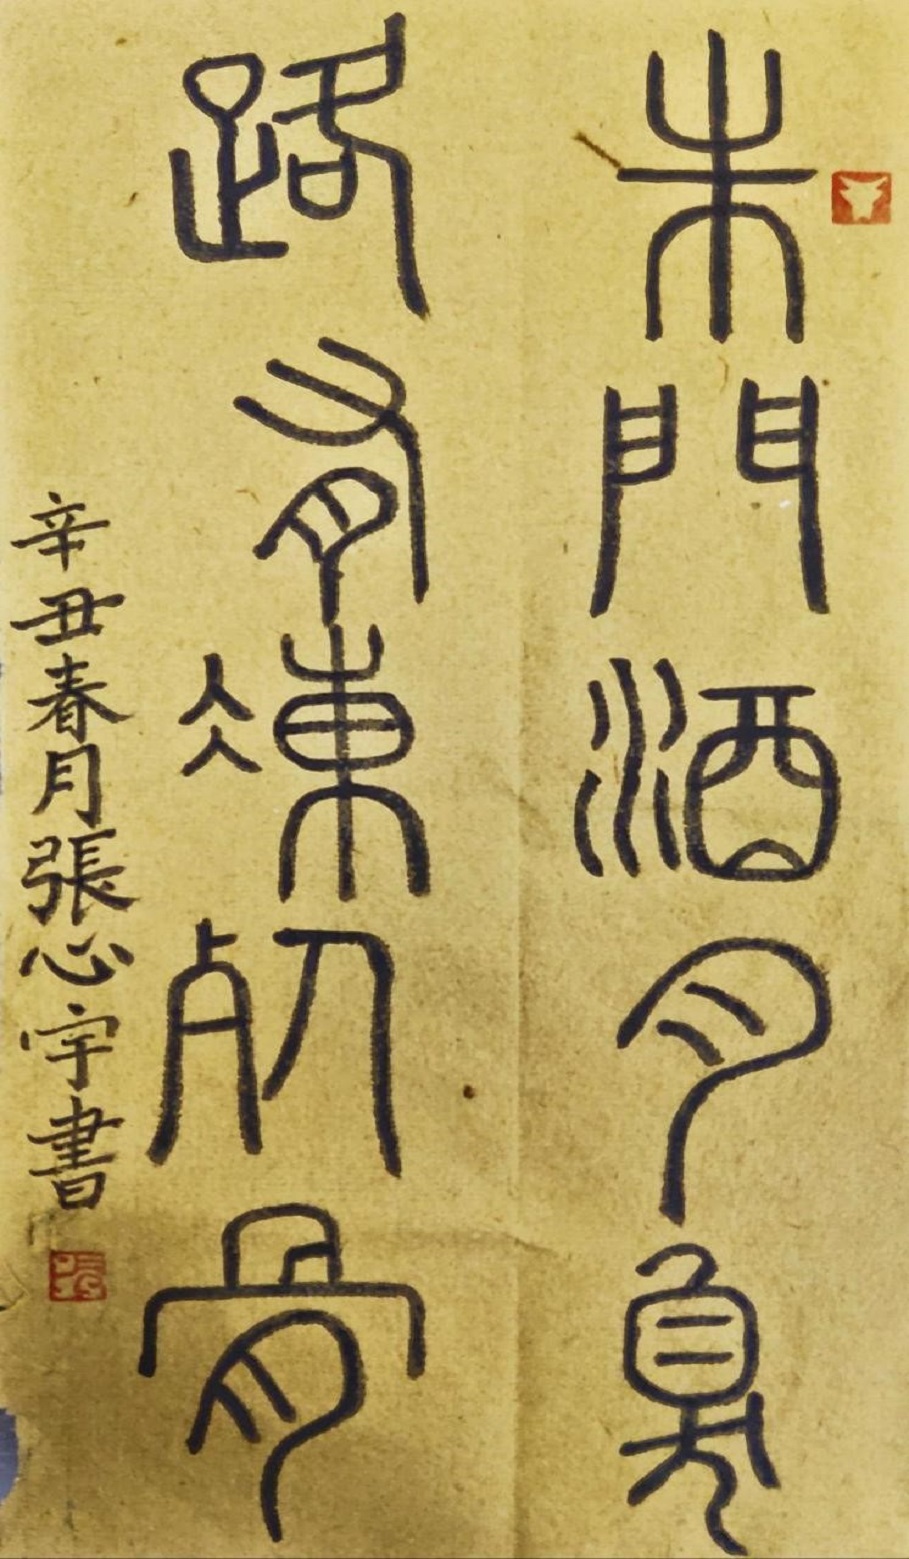 朱門酒肉臭
路有凍死骨
辛丑春月張心宇書